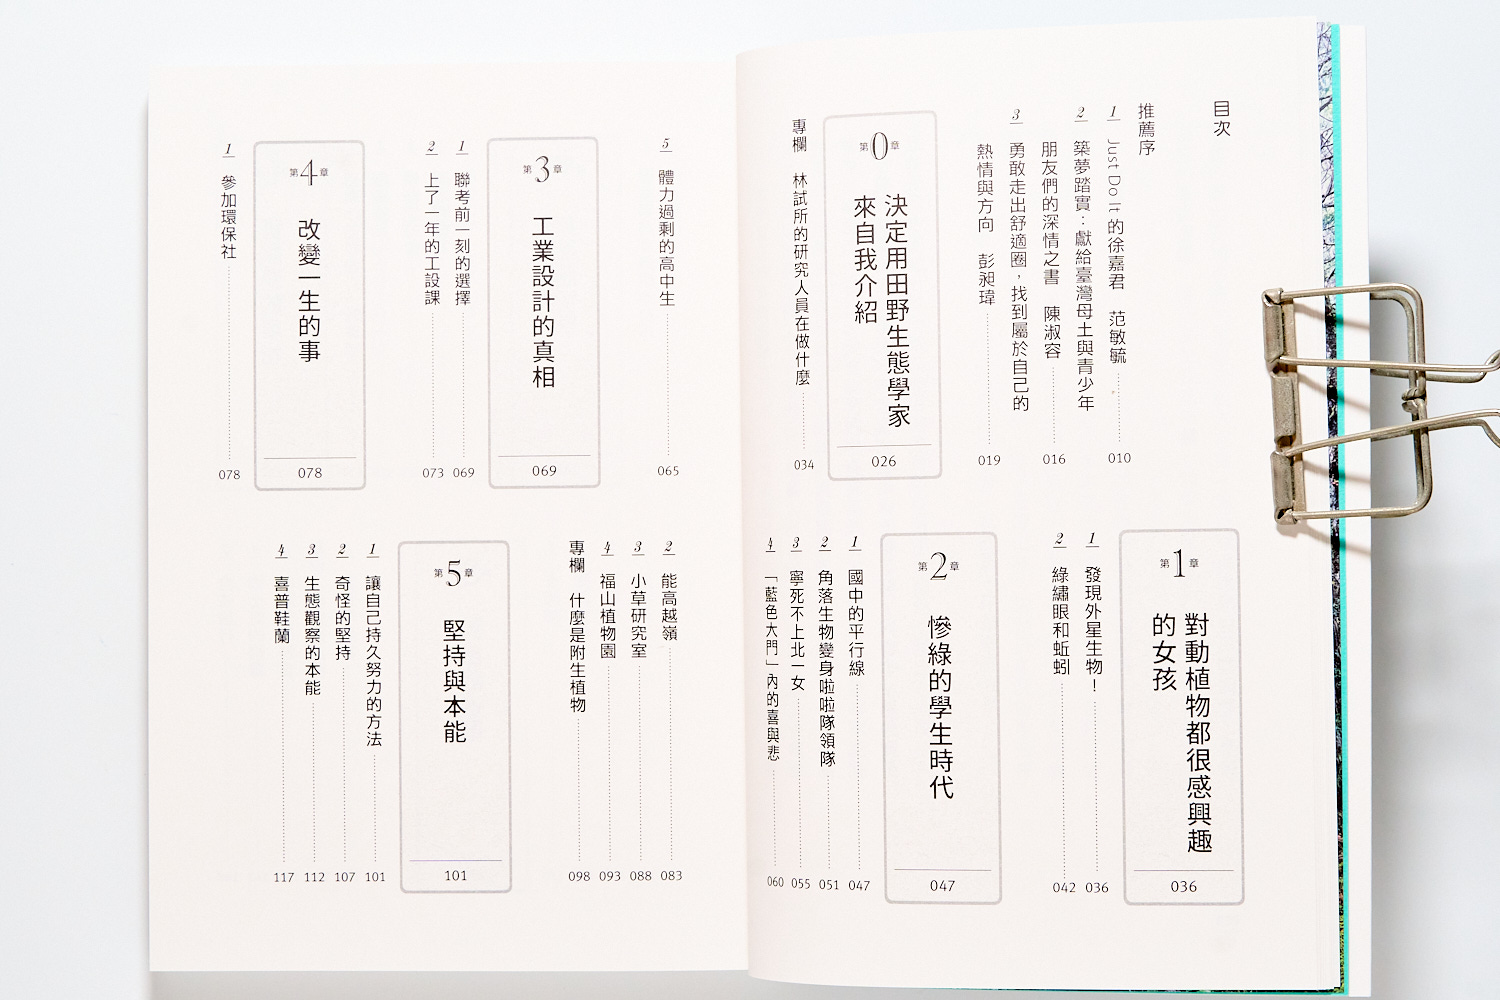 目次
推薦序
1 Just Do It 的徐嘉君 范敏毓 010
2 築夢踏實：獻給臺灣母土與青少年
朋友們的深情之書 陳淑容 016
3 勇敢走出舒適圈，找到屬於自己的
熱情與方向 彭昶瑋 019
第0章
決定用田野生態學家
來自我介紹
026
專欄 林試所的研究人員在做什麼 034
第1章
對動植物都很感興趣
的女孩
036
1 發現外星生物！ 036
2 綠繡眼和蚯蚓 042
第2章
慘綠的學生時代
047
1 國中的平行線 047
2 角落生物變身啦啦隊領隊 051
3 寧死不上北一女 055
4 「藍色大門」內的喜與悲 060
5 體力過剩的高中生 065
第3章
工業設計的真相
069
1 聯考前一刻的選擇 069
2 上了一年的工設課 073
第4章
改變一生的事
078
1 參加環保社 078
2 能高越嶺 083
3 小草研究室 088
4 福山植物園 093
專欄 什麼是附生植物 098
第5章
堅持與本能
101
1 讓自己持久努力的方法 101
2 奇怪的堅持 107
3 生態觀察的本能 112
4 喜普鞋蘭 117